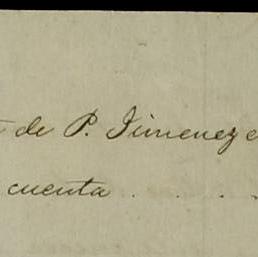 de P. Jimenez
cuenta . . .